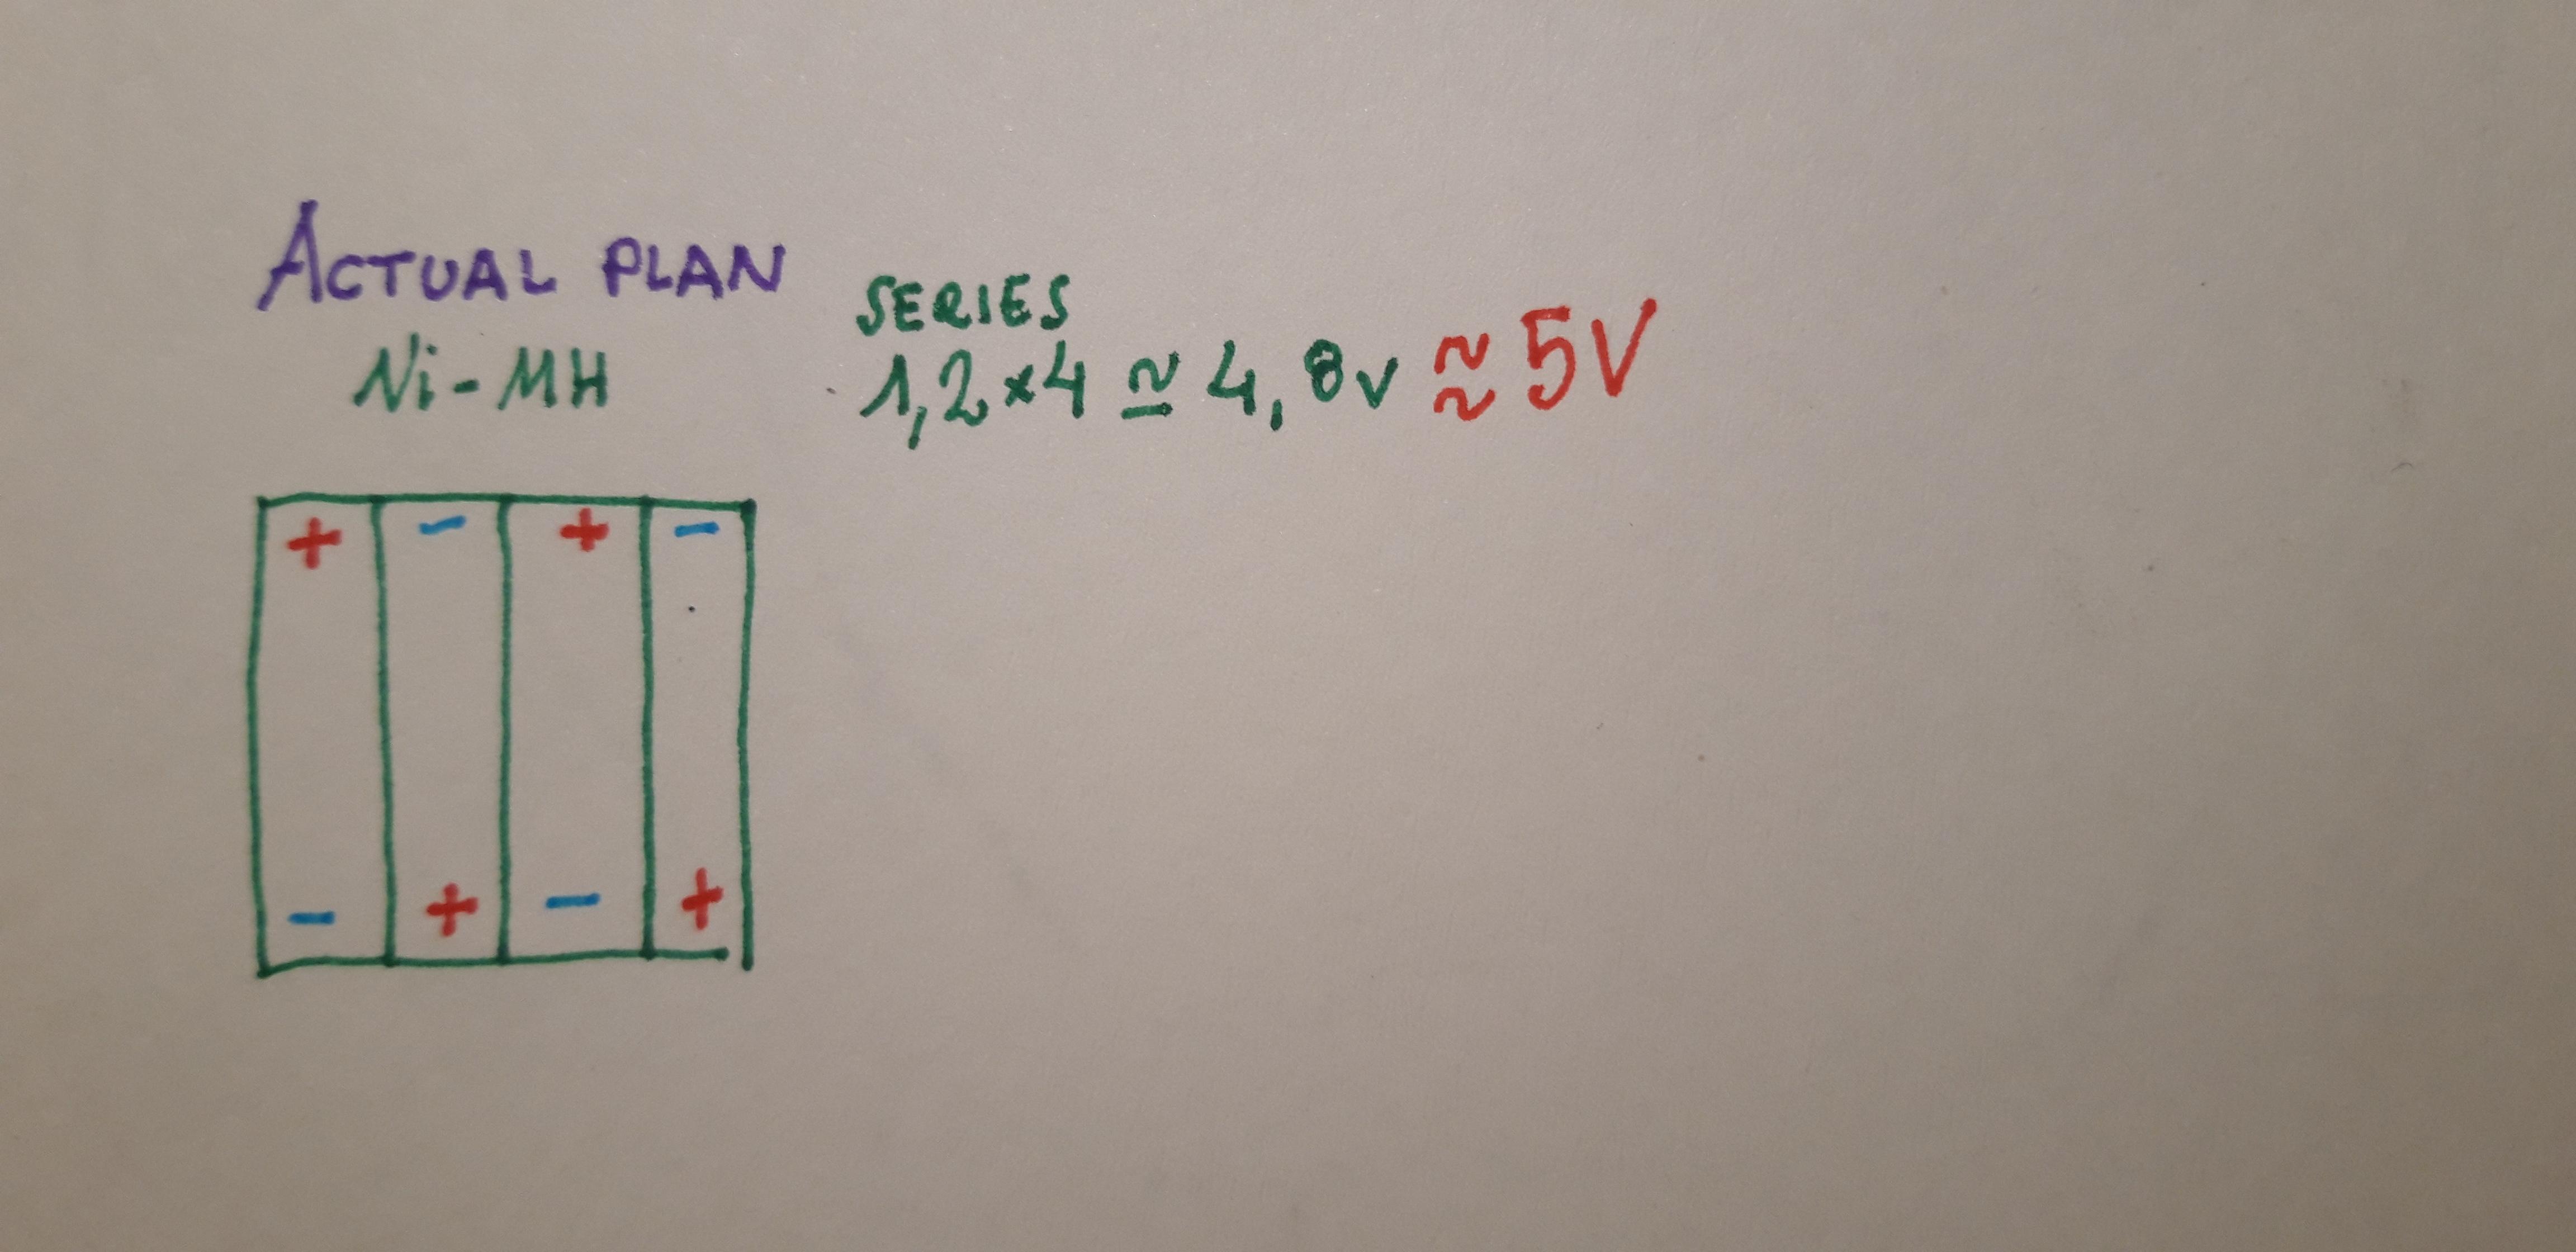 ACTUAL PLAN
Ni-MH
SERIES
1,2×4 ≃ 4,8v ≈ 5V
+ - + -
- + - +